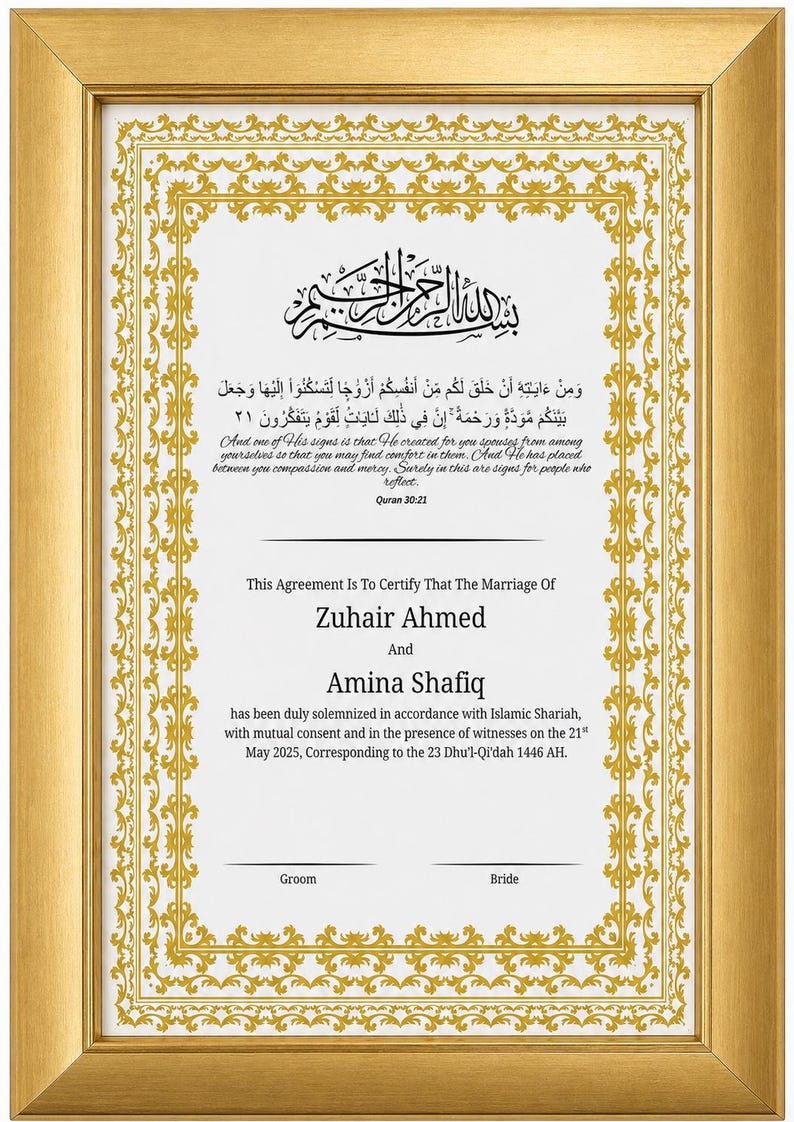 بسم الله الرحمن الرحيم
وَمِنْ ءَايَـٰتِهِۦٓ أَنْ خَلَقَ لَكُم مِّنْ أَنفُسِكُمْ أَزْوَٰجًا لِّتَسْكُنُوٓا۟ إِلَيْهَا وَجَعَلَ
بَيْنَكُم مَّوَدَّةً وَرَحْمَةً ۚ إِنَّ فِي ذَٰلِكَ لَـَٔايَـٰتٍ لِّقَوْمٍ يَتَفَكَّرُونَ ٢١
And one of His signs is that He created for you spouses from among
yourselves so that you may find comfort in them. And He has placed
between you compassion and mercy. Surely in this are signs for people who
reflect.
Quran 30:21
This Agreement Is To Certify That The Marriage Of
Zuhair Ahmed
And
Amina Shafiq
has been duly solemnized in accordance with Islamic Shariah,
with mutual consent and in the presence of witnesses on the 21st
May 2025, Corresponding to the 23 Dhu’l-Qi'dah 1446 AH.
Groom Bride